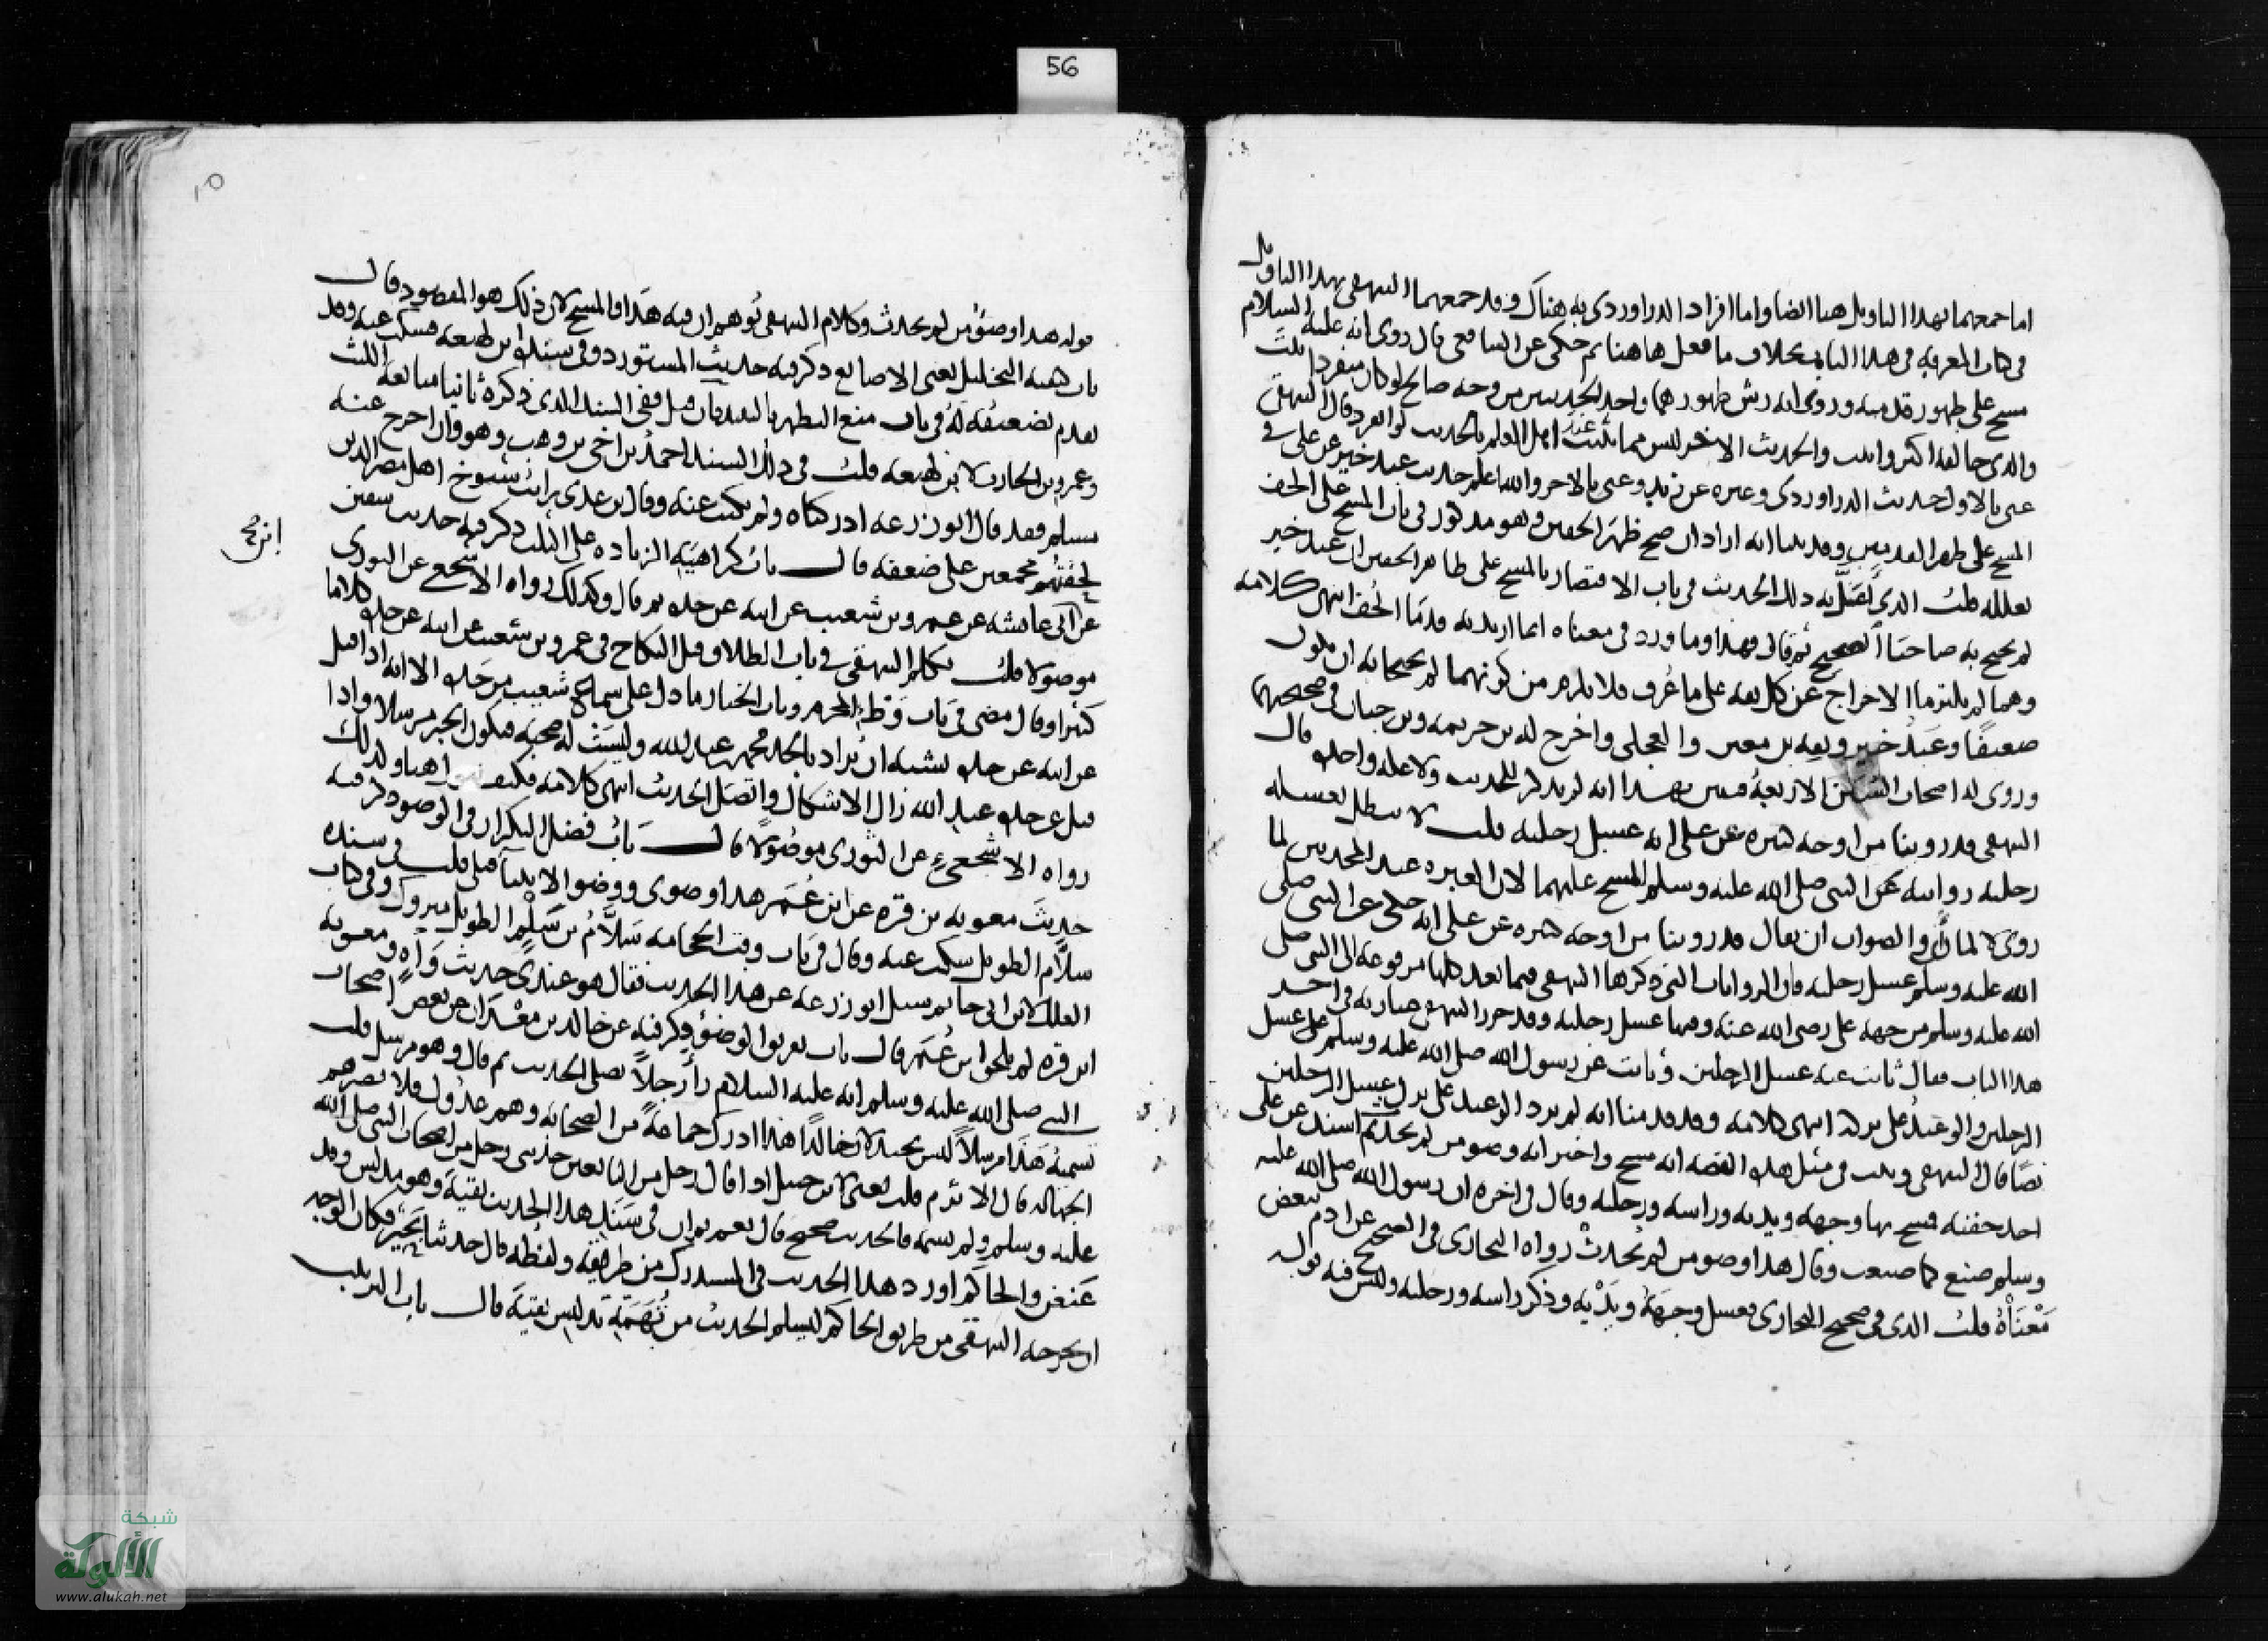 56
اما جمعهما بهذا التاويل هنا ايضا واما افراد الدراوردي به هناك وقد جمعهما البيهقي بهذا التاويل
في كتاب المعرفة في هذا الباب بخلاف ما فعل هاهنا ثم حكى عن الشافعي قال روي انه عليه السلام
مسح على ظهور قدميه وروي انه رش ظهورهما واحد الحديثين من وجه صالح لو كان منفردا ثبت
والذي خالفه اكثر واثبت والحديث الاخر ليس مما يثبت عند اهل العلم بالحديث لو انفرد قال البيهقي
عنى بالاول حديث الدراوردي وغيره عن زيد وعنى بالاخر والله اعلم حديث عبد خير عن علي في
المسح على ظهر القدمين وقد بينا انه اراد ان صح ظهر الخفين وهو مذكور في باب المسح على الخف
بعلله قلت الذي يعلل به ذلك الحديث في باب الاقتصار بالمسح على ظاهر الخفين ان عبد خير
لم يحتج به صاحبا الصحيح ثم قال فهذا وما ورد في معناه انما اريد به قدما الخف انتهى كلامه
وهما لم يلتزما الاخراج عن كل ثقة على ما عرف فلا يلزم من كونهما لم يحتجا به ان يكون
ضعيفا وعبد خير وثقه بن معين والعجلي واخرج له بن خزيمة وبن حبان في صحيحهما
وروى له اصحاب السنن الاربعة فتبين بهذا انه لم يذكر للحديث ولا علة واحدة قال
البيهقي قد روينا من اوجه كثيرة عن علي انه غسل رجليه قلت لا يبطل بغسله
رجليه روايته عن النبي صلى الله عليه وسلم المسح عليهما لان العبرة عند المحدثين لما
روى لا لما رأى والصواب ان يقال قد روينا من اوجه كثيرة عن علي انه حكى عن النبي صلى
الله عليه وسلم غسل رجليه فان الروايات التي ذكرها البيهقي فيما بعد كلها مرفوعة الى النبي صلى
الله عليه وسلم من جهة علي رضي الله عنه وفيها غسل رجليه وقد حرر البيهقي عبارته في احد
هذا الباب فقال ثابت عنه غسل الرجلين وثابت عن رسول الله صلى الله عليه وسلم على غسل
الرجلين والوعيد على تركه انتهى كلامه وقد قدمنا انه لم يرد الوعيد على ترك غسل الرجلين
نصا قال البيهقي وثبت في مثل هذه القصة انه مسح واخبر انه وضو من لم يحدث ثم اسند عن علي
اخذ حفنة فمسح بها وجهه ويديه وراسه ورجليه وقال في اخره ان رسول الله صلى الله عليه
وسلم صنع كما صنعت وقال هذا وضو من لم يحدث رواه البخاري في الصحيح عن ادم ببعض
معناه قلت الذي في صحيح البخاري فغسل وجهه ويديه وذكر راسه ورجليه وليس فيه قوله
قوله هذا وضوء من لم يحدث وكلام البيهقي يوهم ان فيه هذا والمسح لان ذلك هو المقصود قال
باب كيفية التخليل يعني الاصابع وذكر فيه حديث المستورد وفي سنده ابن لهيعة فسكت عنه وقد
تقدم تضعيفه له في باب منع التطهير بالنبيذ فان قيل ففي السند الذي ذكره ثانيا متابعة الليث
وعمرو بن الحارث لابن لهيعة قلت في ذلك السند احمد بن اخي بن وهب وهو وان اخرج عنه
مسلم فقد قال ابو زرعة ادركناه ولم نكتب عنه وقال بن عدي رايت شيوخ اهل مصر الذين
لحقتهم مجمعين على ضعفه قال باب كراهية الزيادة على الثلث ذكر فيه حديث سفين
عن ابن ابي عائشة عن عمرو بن شعيب عن ابيه عن جده ثم قال وكذلك رواه الاشجعي عن الثوري
موصولا قلت تكلم البيهقي في باب الطلاق قبل النكاح في عمرو بن شعيب عن ابيه عن جده كلاما
كثيرا وقال مضى في باب وطء المحرم وباب الخيار ما دل على سماع شعيب من جده الا انه اذا قيل
عن ابيه عن جده يشبه ان يراد بالجد محمد بن عبد الله وليست له صحبة فيكون الخبر مرسلا واذا
قيل عن جده عبد الله زال الاشكال واتصل الحديث انتهى كلامه فكيف هنا ولذلك
رواه الاشجعي عن الثوري موصولا قال باب فضل التكرار في الوضوء ذكر فيه
حديث معوية بن قرة عن ابن عمر هذا وضوي ووضو الانبيا قبلي قلت في سنده
سلام الطويل سكت عنه وقال في باب وقت الحجامة سلام بن سلم الطويل متروك وفي كتاب
العلل لابن ابي حاتم سئل ابو زرعة عن هذا الحديث فقال هو عندي حديث واه ومعوية
ابن قرة لم يلحق ابن عمر قال باب تفريق الوضوء وذكر فيه عن خالد بن معدان عن بعض اصحاب
النبي صلى الله عليه وسلم انه عليه السلام رأى رجلا يصلي الحديث ثم قال وهو مرسل قلت
تسمية هذا مرسلا ليس بجيد لان خالدا هذا ادرك جماعة من الصحابة وهم عدول فلا تضرهم
الجهالة قال الاثرم قلت يعني لابن حنبل اذا قال رجل من التابعين حدثني رجل من اصحاب النبي صلى الله
عليه وسلم ولم يسمه فالحديث صحيح قال نعم ثم ان في سند هذا الحديث بقية وهو مدلس وقد
عنعن والحاكم اورد هذا الحديث في المستدرك من طريقه ولفظه قال حدثنا بحير فكان الوجه
ان يخرجه البيهقي من طريق الحاكم ليسلم الحديث من تهمة تدليس بقية قال باب الترتيب
شبكة
الألوكة
www.alukah.net